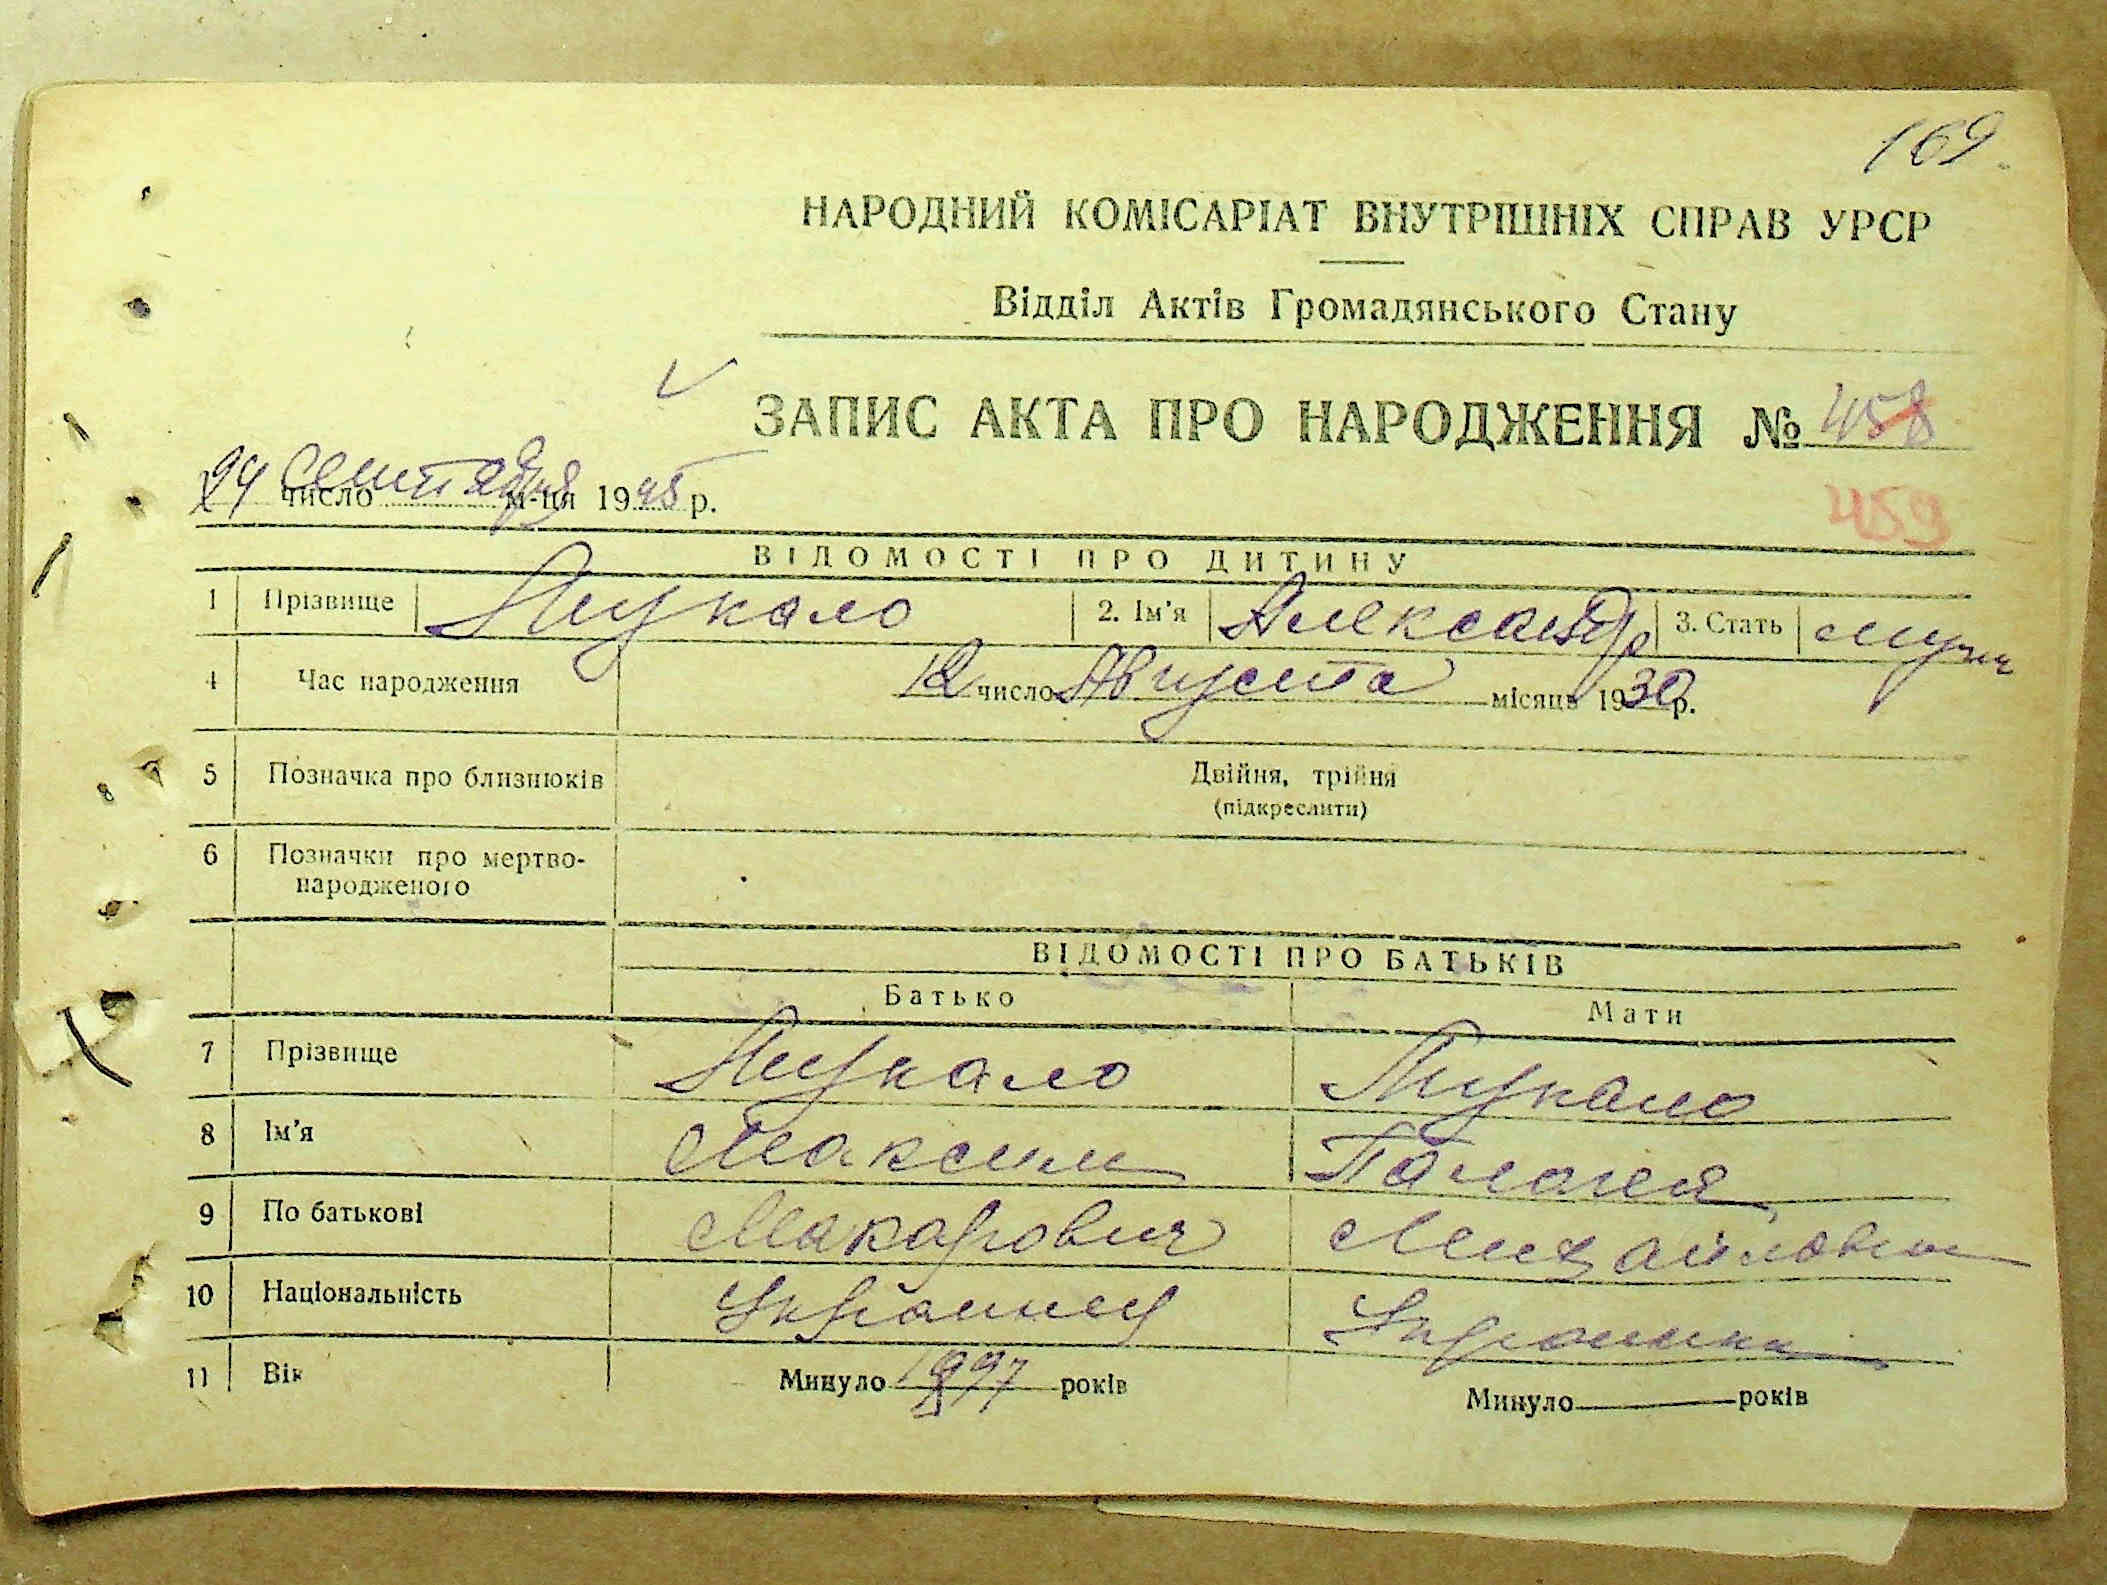 169
НАРОДНИЙ КОМІСАРІАТ ВНУТРІШНІХ СПРАВ УРСР
Відділ Актів Громадянського Стану
ЗАПИС АКТА ПРО НАРОДЖЕННЯ № 458
24 число сентября м-ця 1945 р.
459
ВІДОМОСТІ ПРО ДИТИНУ
1 Прізвище 2. Ім'я Александр 3. Стать муж
4 Час народження 12 число Августа місяць 1930 р.
5 Позначка про близнюків Двійня, трійня
(підкреслити)
6 Позначки про мертво-
народженого
ВІДОМОСТІ ПРО БАТЬКІВ
Батько Мати
7 Прізвище
8 Ім'я Максим Палагея
9 По батькові Макарович Михайловна
10 Національність Украинец Украинка
11 Вік Минуло років Минуло років